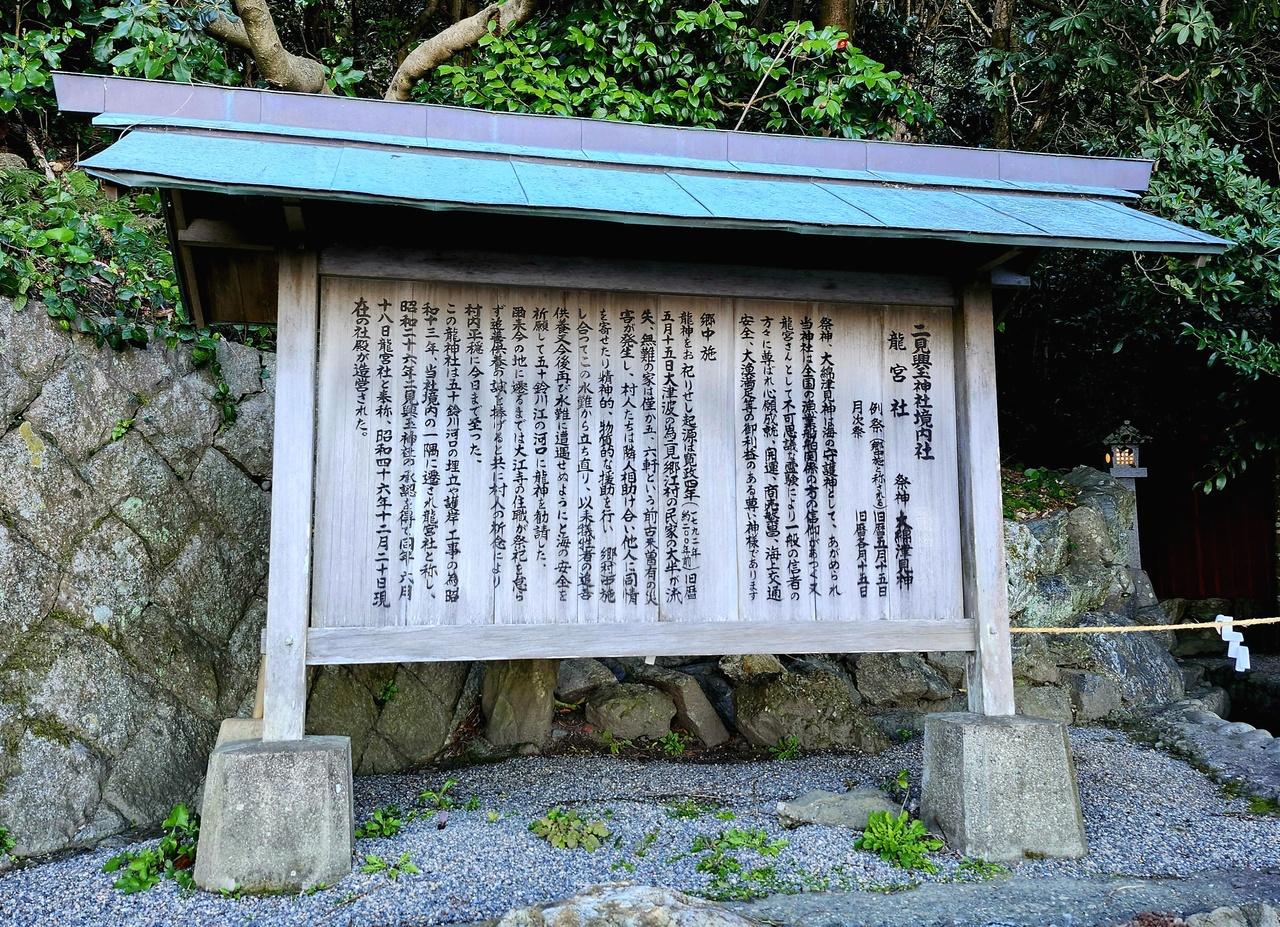 二見興玉神社境内社
龍宮社 祭神 大綿津見神
例祭(郷中施と称される)旧暦五月十五日
月次祭 旧暦各月十五日
祭神、大綿津見神は海の守護神として、あがめられ
当神社は全国の漁業、船舶関係の方の信仰があつく又
龍宮さんとして不可思議な霊験により一般の信者の
方々に尊ばれ心願成就、開運、商売繁昌、海上交通
安全、大漁満足等の御利益のある尊い神様であります
郷中施
龍神をお祀りせし起源は寛政四年(一七九二年 約二〇〇年前)旧暦
五月十五日大津波の為二見郷江村の民家の大半が流
失、無難の家は僅か五、六軒という前古未曽有の災
害が発生し、村人たちは隣人相助け合い、他人に同情
を寄せたり精神的、物質的な援助を行い、郷村中施
し合ってこの水難から立ち直り、以来犠牲者の追善
供養又今後再び水難に遭遇せぬようにと海の安全を
祈願して五十鈴川江の河口に龍神を勧請した。
爾来今の地に遷るまでは大江寺の住職が祭祀を怠ら
ず追善供養の誠を捧げると共に村人の祈念により
村内平穏に今日まで至った。
この龍神社は五十鈴川河の埋立や護岸工事の為昭
和十三年、当社境内の一隅に遷され龍宮社と称し、
昭和二十六年二見興玉神社の承認を得、同年六月
十八日龍宮社と奉称、昭和四十六年十二月二十日現
在の社殿が造営された。